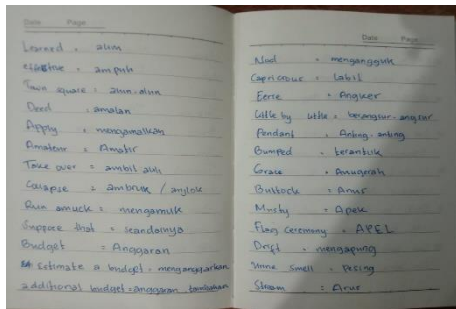 Date Page
Learned = alim
effective = ampuh
Town square = alun-alun
Deed = amalan
Apply = mengamalkan
Amateur = Amatir
Take over = ambil alih
Colapse = ambruk / anjlok
Run amuck = mengamuk
Suppose that = seandainya
Budget = Anggaran
estimate a budget = menganggarkan
additional budget = anggaran tambahan
Date Page
Nod = mengangguk
Capricious = Labil
Eerie = Angker
Little by little = berangsur-angsur
Pendant = Anting-anting
Bumped = terantuk
Grace = Anugerah
= Anus
Musty = Apek
Flag Ceremony = APEL
Drift = mengapung
Urine smell = Pesing
Stream = Arus